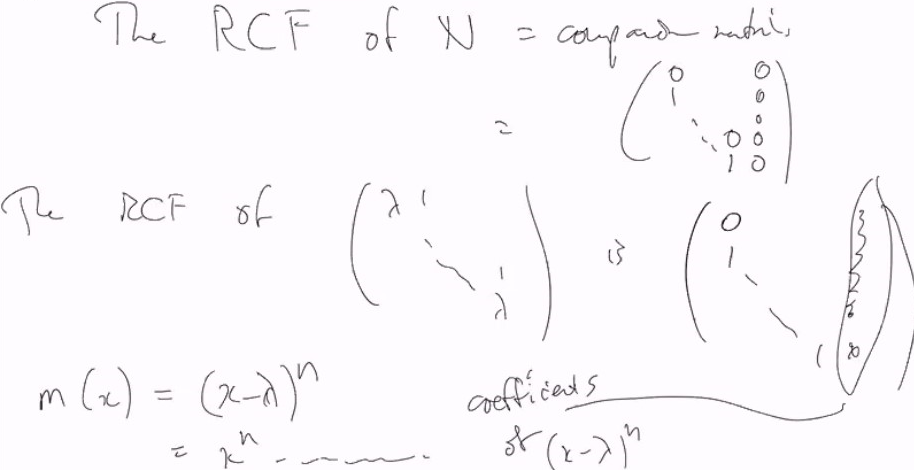 The RCF of N = companion matrix
= ( 0 0
1 0
0
0 0
1 0 )
The RCF of ( λ 1
1
λ ) is ( 0
1
1 )
m(x) = (x-λ)ⁿ coefficients
= xⁿ ------- of (x-λ)ⁿ